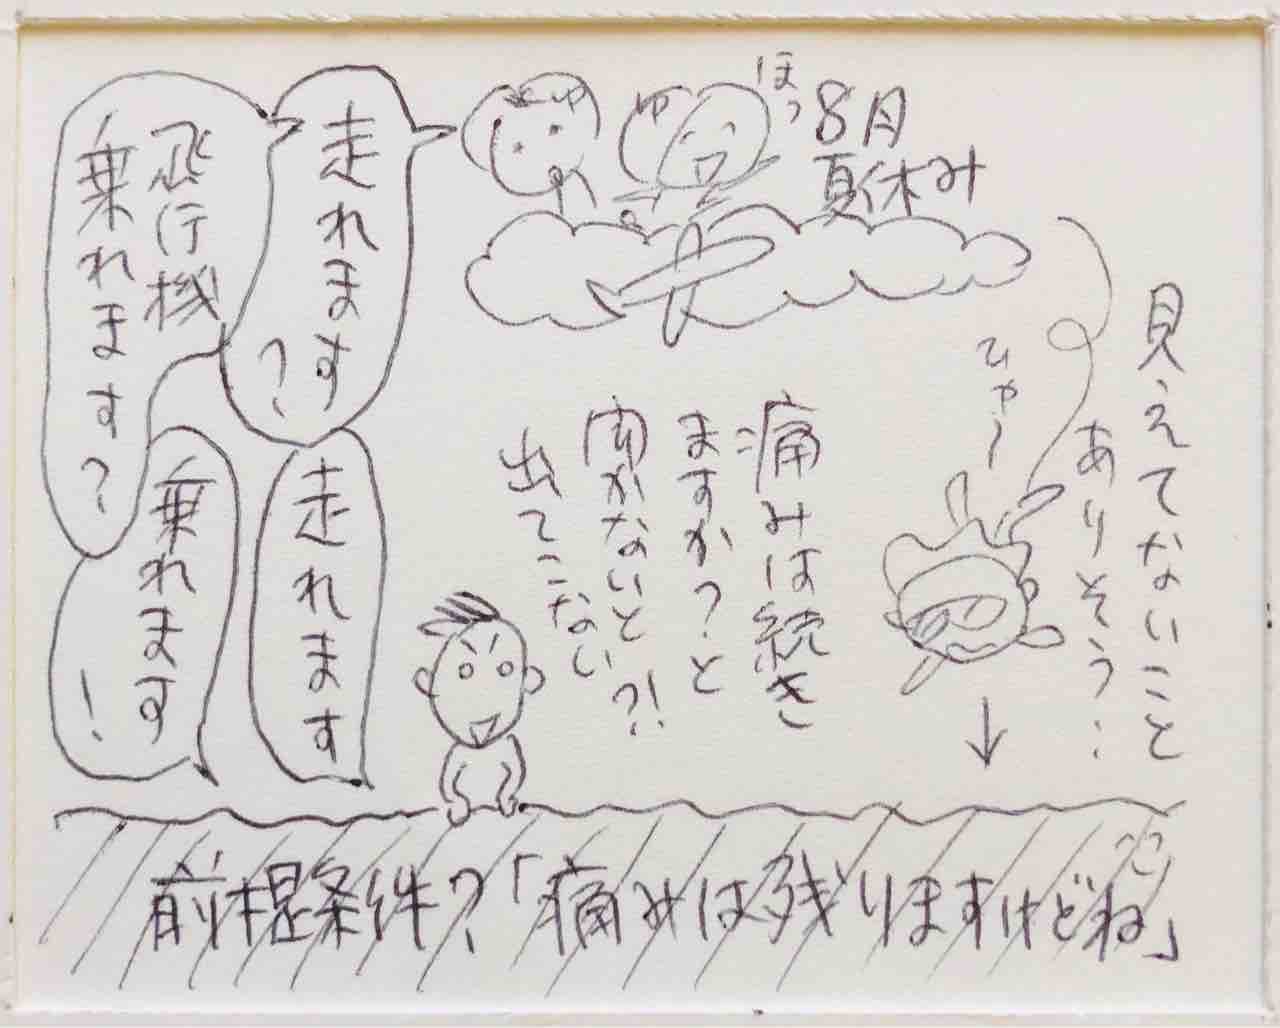 ほっ
8月
夏休み
走れます?
飛行機
乗れます?
走れます
乗れます!
見えてないこと
ありそう…
ひゃー
痛みは続き
ますか?と
聞かないと?!
出てこない
前提条件?「痛みは残りますけどね」